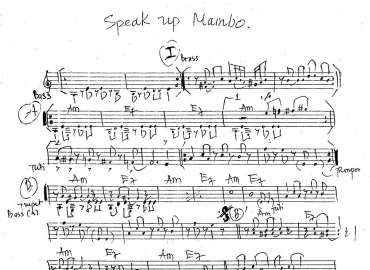 Speak up Mambo.
I Brass
Bass
A Am E7 E7 1 Am
Tutti
B Am E7 Am E7 Am E7
Trumpet
Bass (A)
B Am Tutti E7
Am E7 Am E7